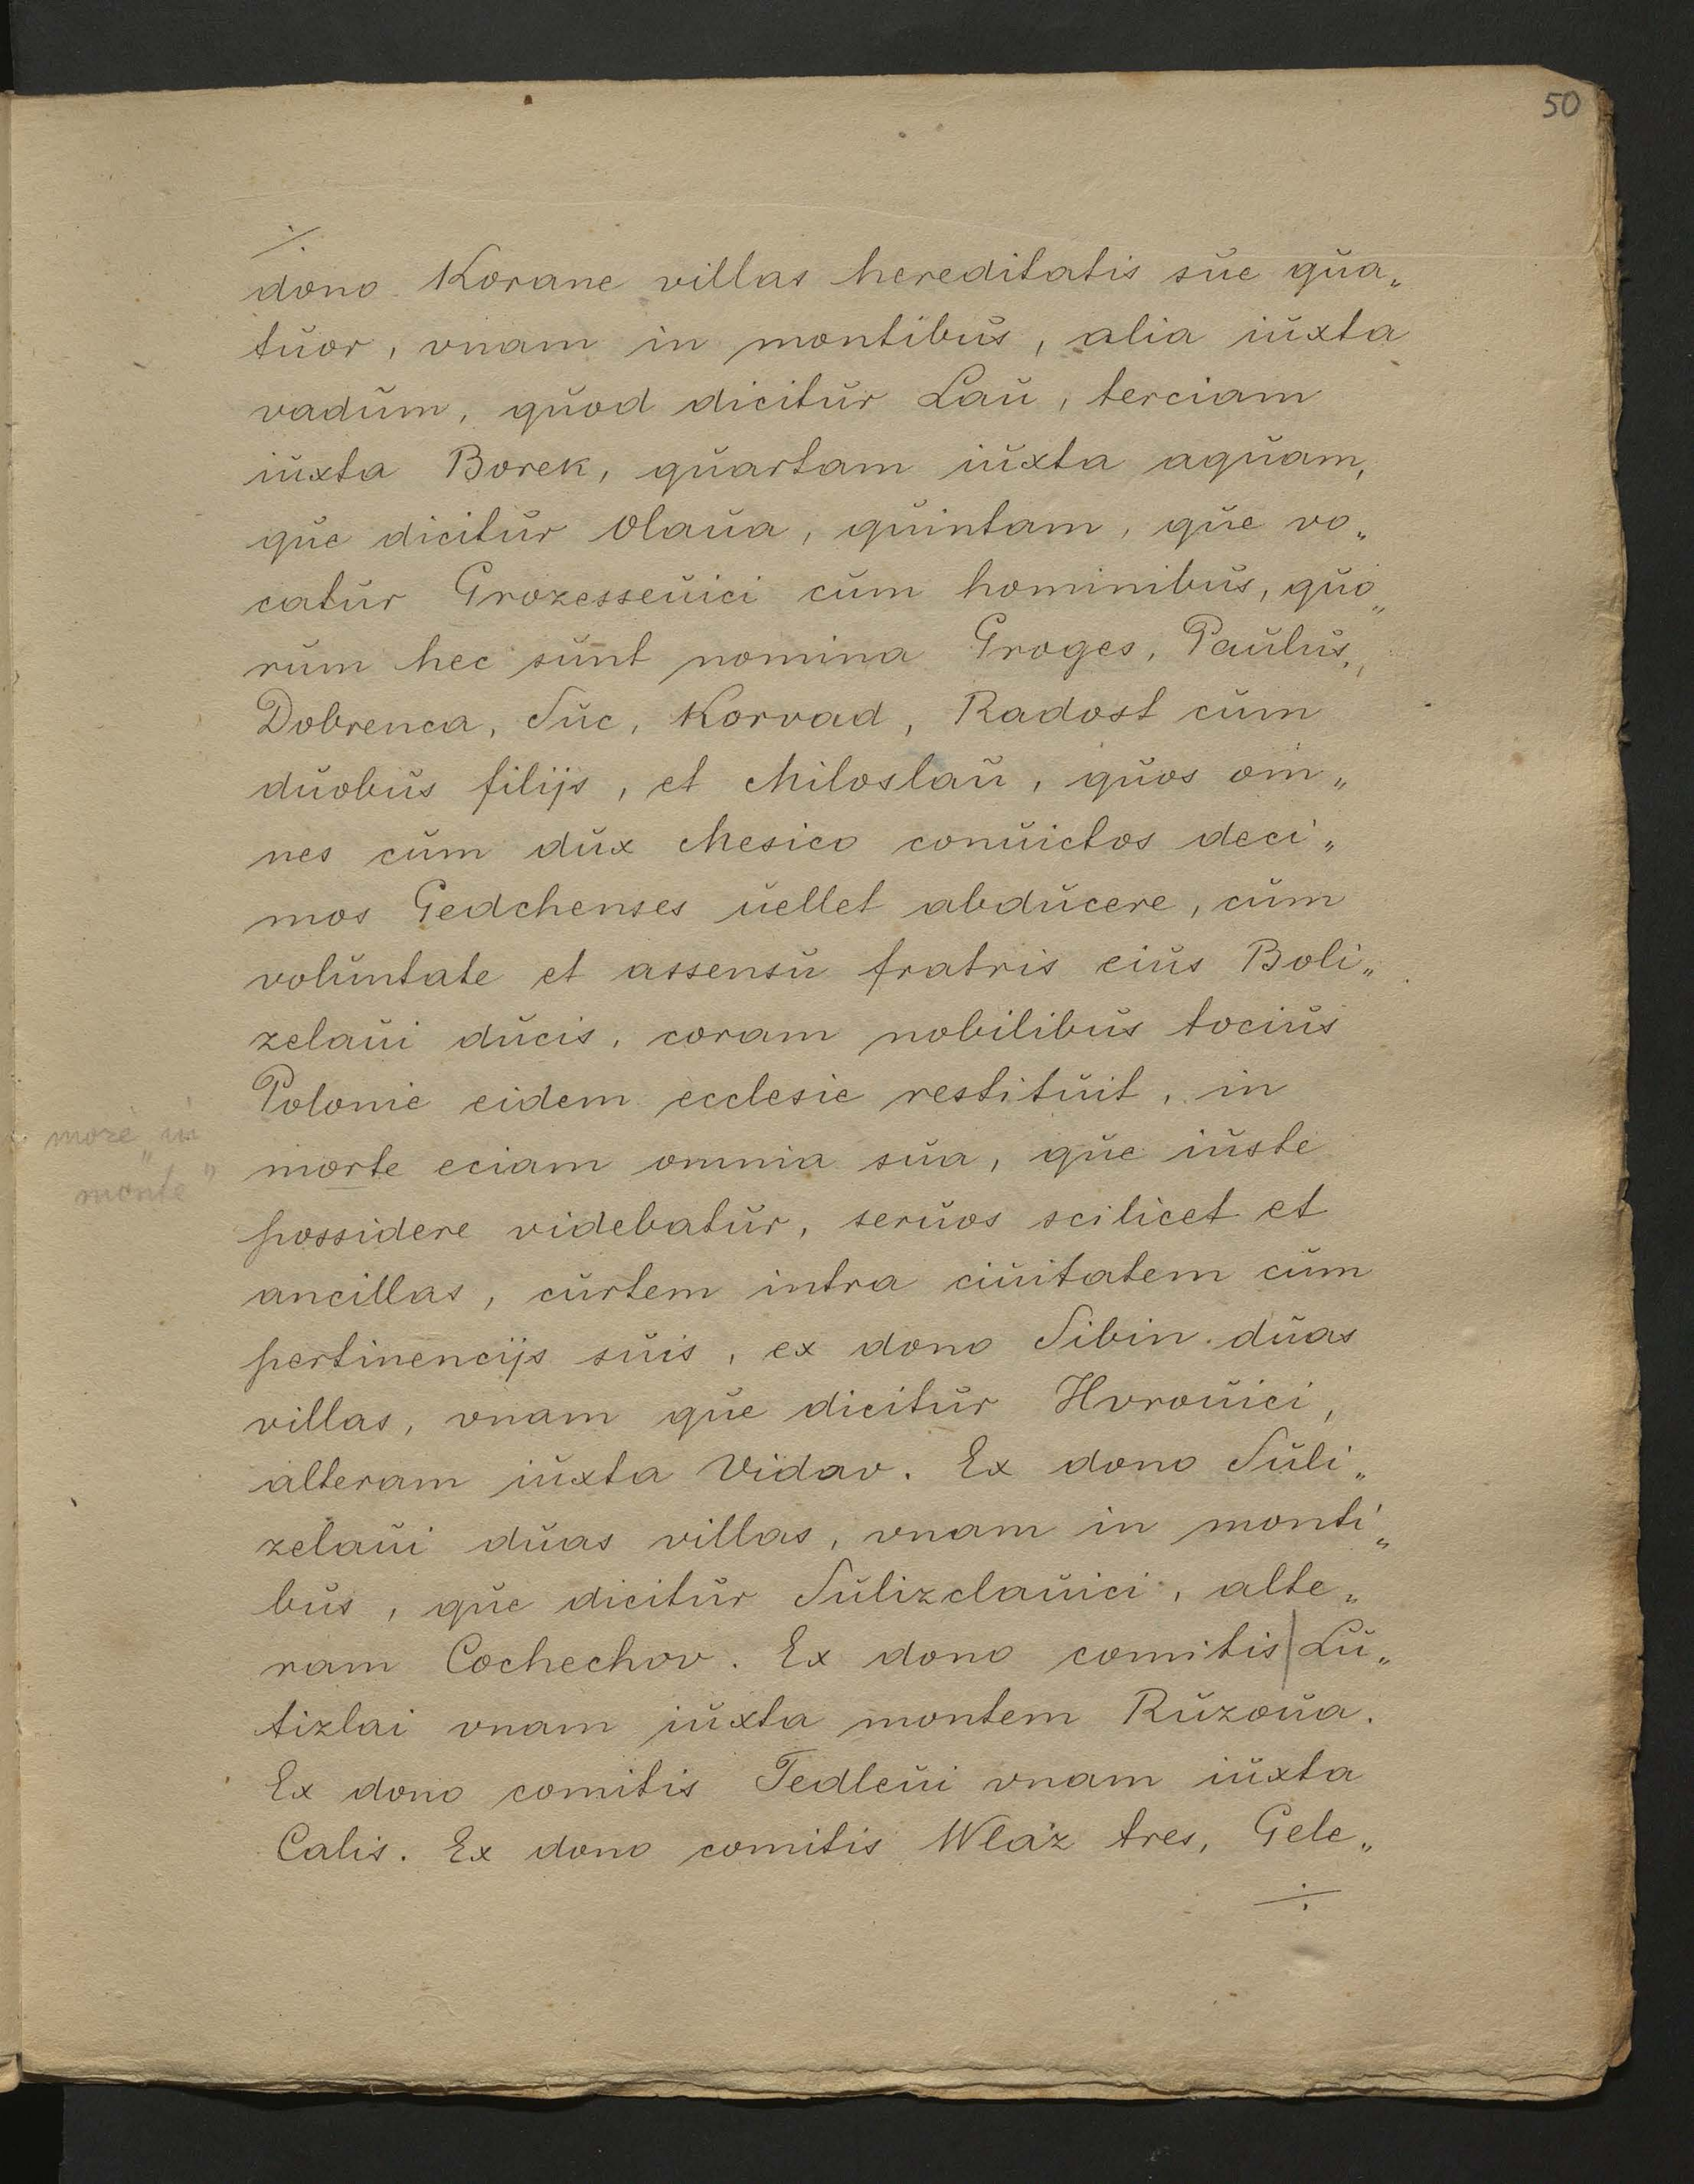 50
÷
dono Korane villas hereditatis sue qua„
tuor, vnam in montibus, alia iuxta
vadum, quod dicitur Lau, terciam
iuxta Borek, quartam iuxta aquam,
que dicitur Olaua, quintam, que vo„
catur Grozesseuici cum hominibus, quo„
rum hec sunt nomina Groges, Paulus,
Dobrenca, Suc, Korvad, Radost cum
duobus filijs, et Miloslau, quos om„
nes cum dux Mesico conuictos deci„
mos Gedchenses uellet abducere, cum
voluntate et assensu fratris eius Boli„
zelaui ducis, coram nobilibus tocius
Polonie eidem ecclesie restituit, in
morte eciam omnia sua, que iuste
może „in
monte”
possidere videbatur, seruos scilicet et
ancillas, curtem intra ciuitatem cum
pertinencijs suis, ex dono Sibin duas
villas, vnam que dicitur Hvrouici,
alteram iuxta Vidav. Ex dono Suli„
zelaui duas villas, vnam in monti„
bus, que dicitur Sulizclauici, alte„
ram Cochechov. Ex dono comitis|Lu„
tizlai vnam iuxta montem Ruzoua.
Ex dono comitis Tedleui vnam iuxta
Calis. Ex dono comitis Wlaz tres, Gele„
÷